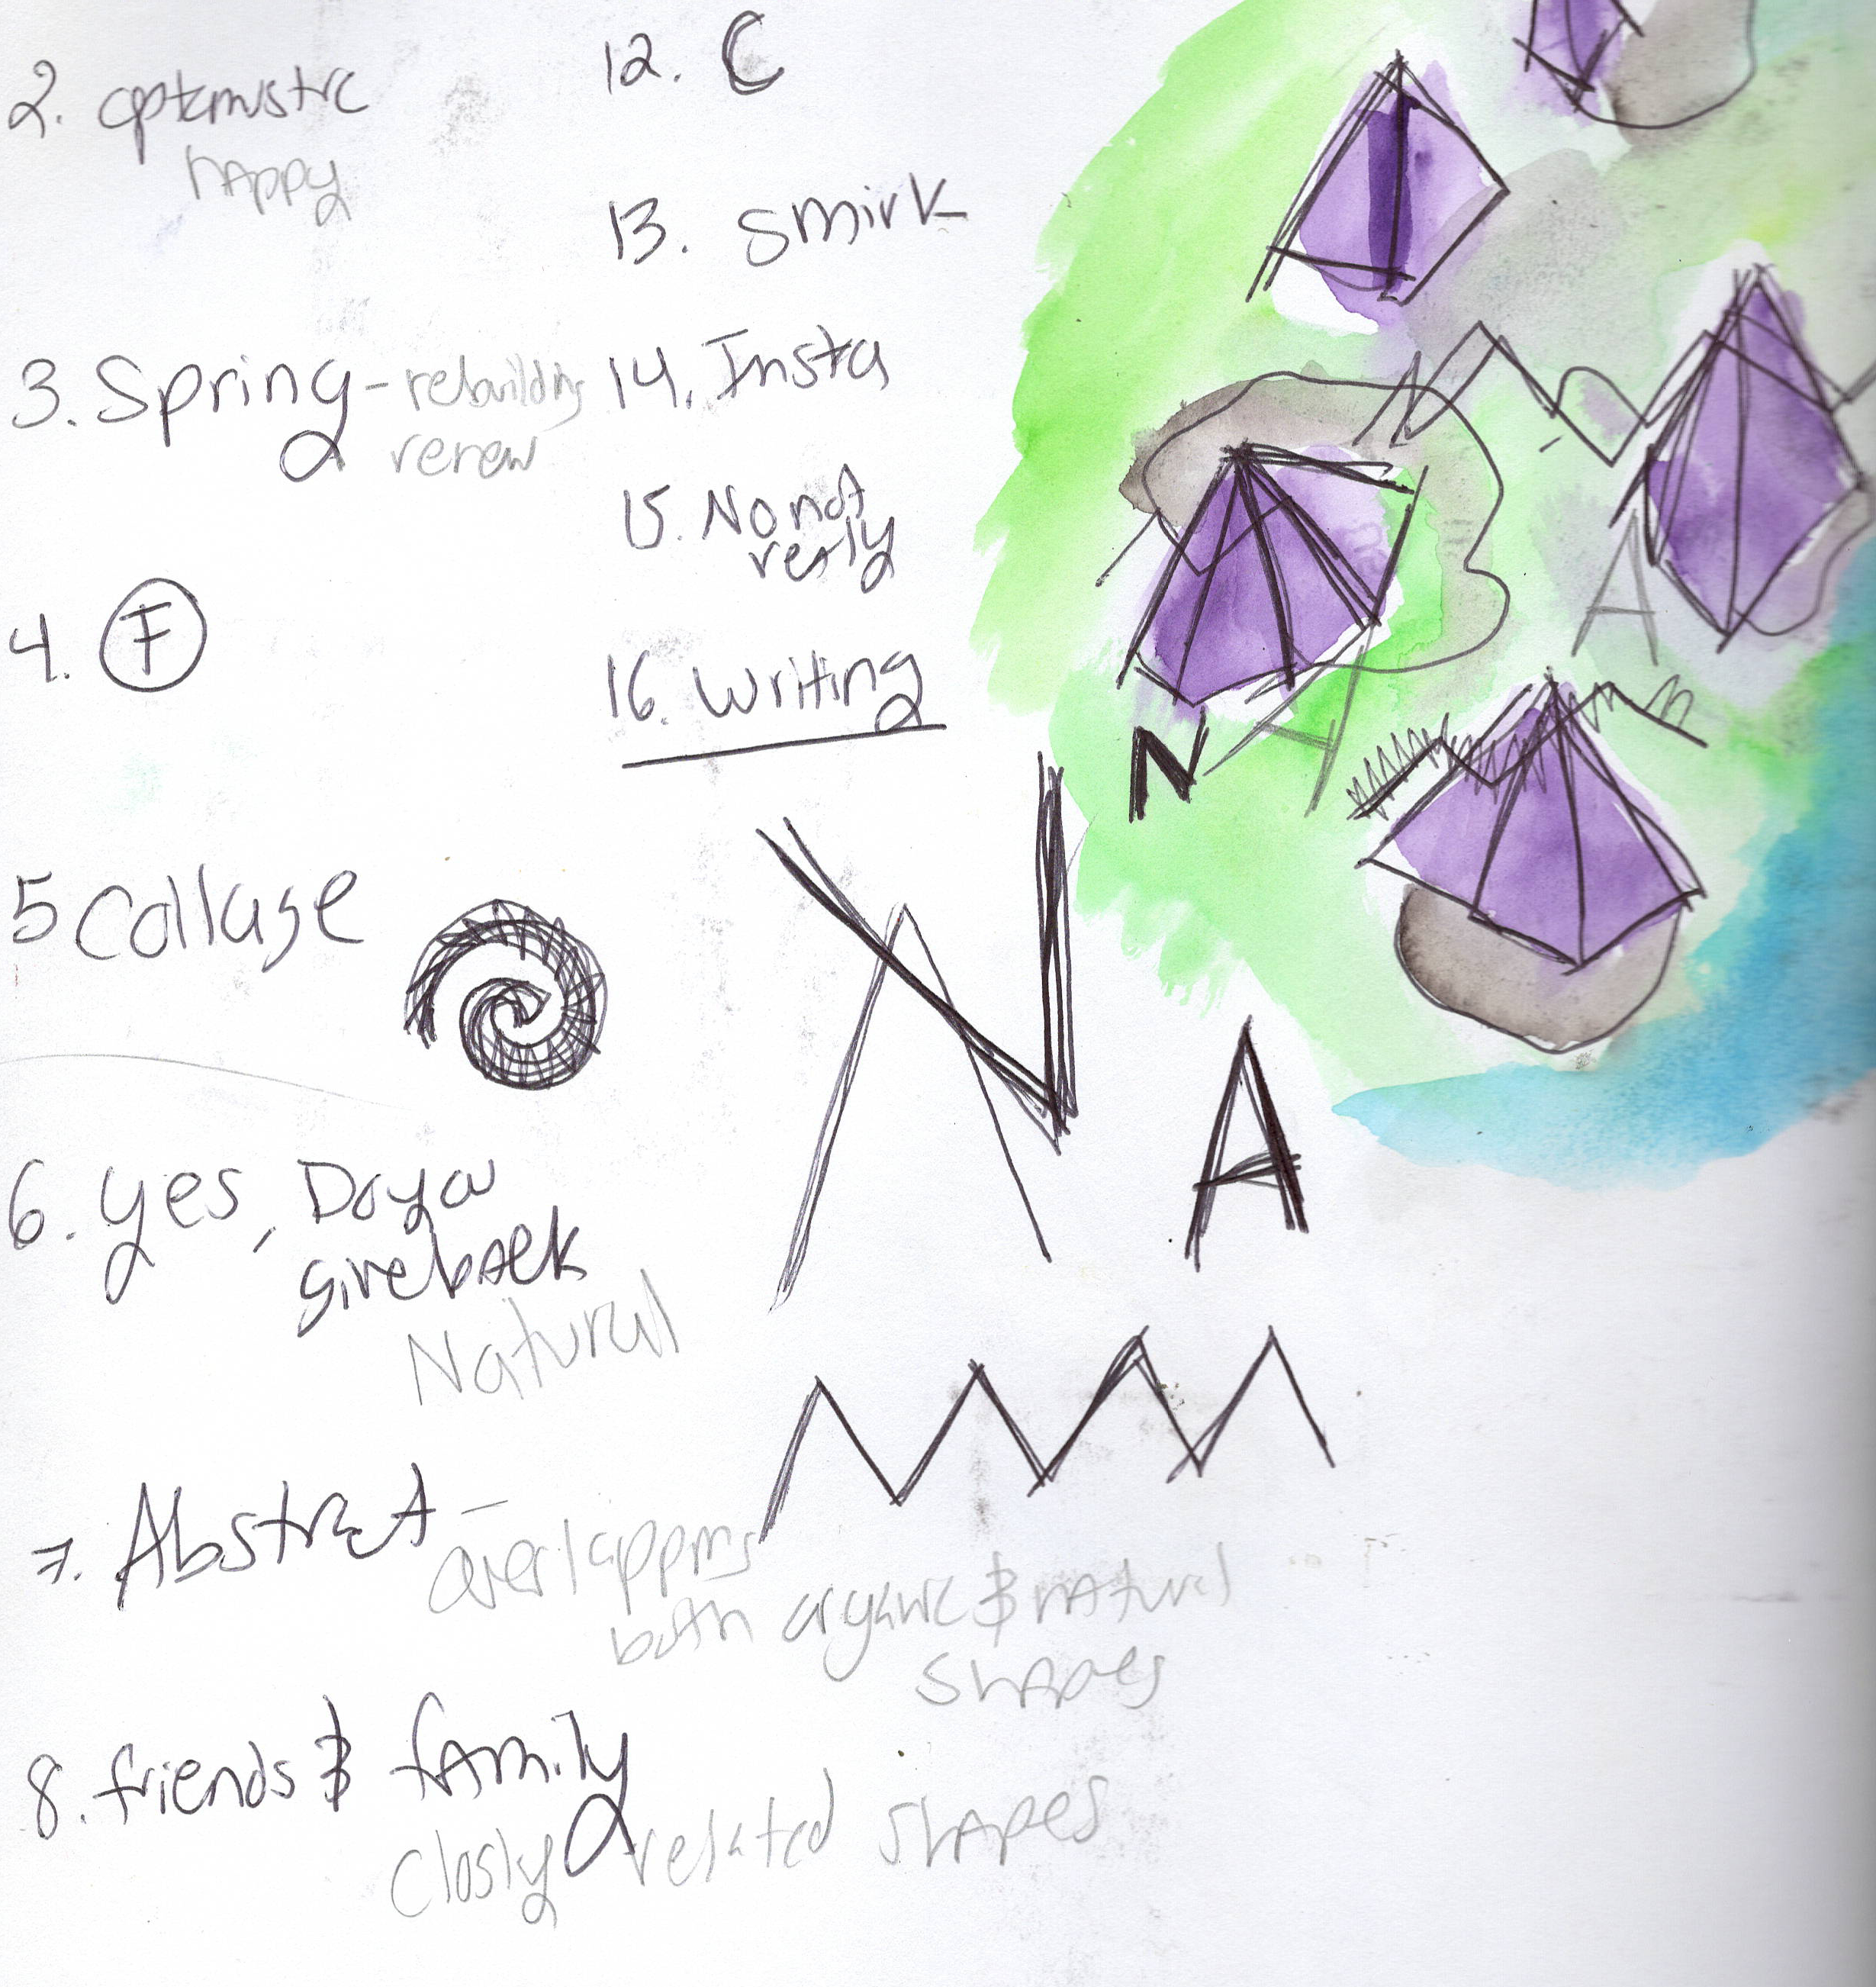 2. optemistic
happy
3. Spring - rebuilding
renew
4. F
5 Collage
6. yes, Do you
give back
Natural
7. Abstract -
overlapping
both organic & natural
shapes
8. friends & family
Closly related shapes
12. C
13. Smirk
14. Insta
15. No not
realy
16. Writing
N
A
A
N
A